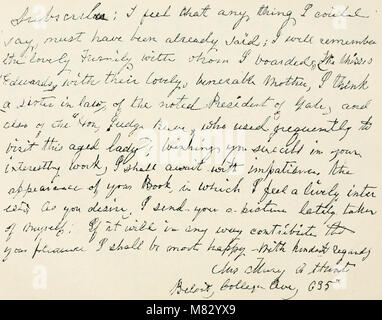 Subscriber; I feel that any thing I could
say, must have been already said; I will remember
the lovely Family with whom I boarded, the Misses
Edwards, with their lovely, venerable Mother, I think
a sister in law, of the noted President of Yale, and
also of the "Hon, Judge Reeve, who used frequently to
visit this aged lady". Wishing you success in your
interesting work, I shall await with impatience, the
appearance of your Book, in which I feel a lively inter
est. As you desire, I send you a picture lately taken
of myself: If it will in any way contribute to
your pleasure I shall be most happy - With kindest regards
Mrs Mary A Hunt
Beloit, College Ave, 635
alamy
Image ID: M82YX9
www.alamy.com